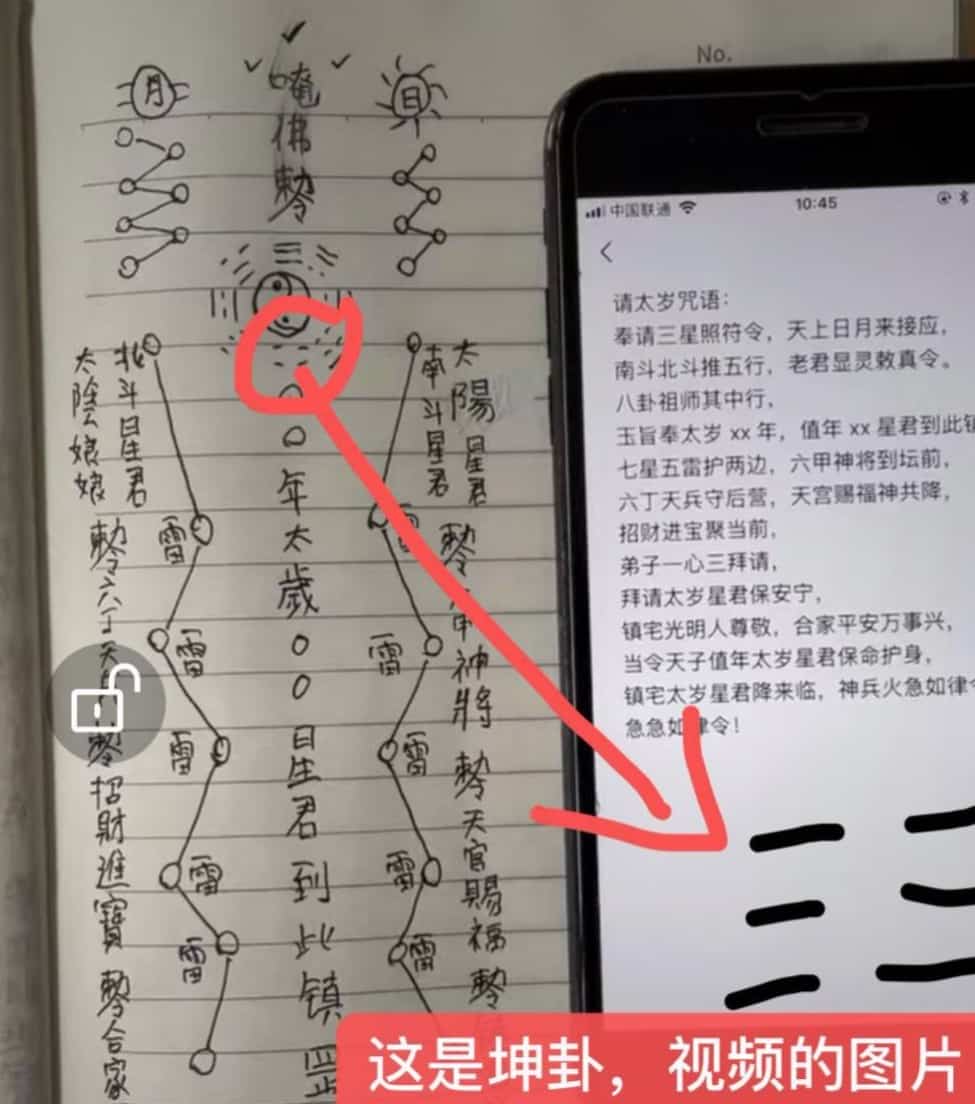 No.
月
唵佛勅
日
太陰娘娘
北斗星君
○○年太歲○○星君到此镇
南斗星君
太陽星君
勅六丁天
勅招財進寶
勅合家
雷
雷
雷
雷
雷
雷
雷
雷
雷
雷
勅
甲神將
勅天官賜福
勅
中国联通
10:45
请太岁咒语：
奉请三星照符令，天上日月来接应，
南斗北斗推五行，老君显灵敕真令。
八卦祖师其中行，
玉旨奉太岁 xx 年，值年 xx 星君到此镇
七星五雷护两边，六甲神将到坛前，
六丁天兵守后营，天宫赐福神共降，
招财进宝聚当前，
弟子一心三拜请，
拜请太岁星君保安宁，
镇宅光明人尊敬，合家平安万事兴，
当令天子值年太岁星君保命护身，
镇宅太岁星君降来临，神兵火急如律令
急急如律令！
这是坤卦，视频的图片